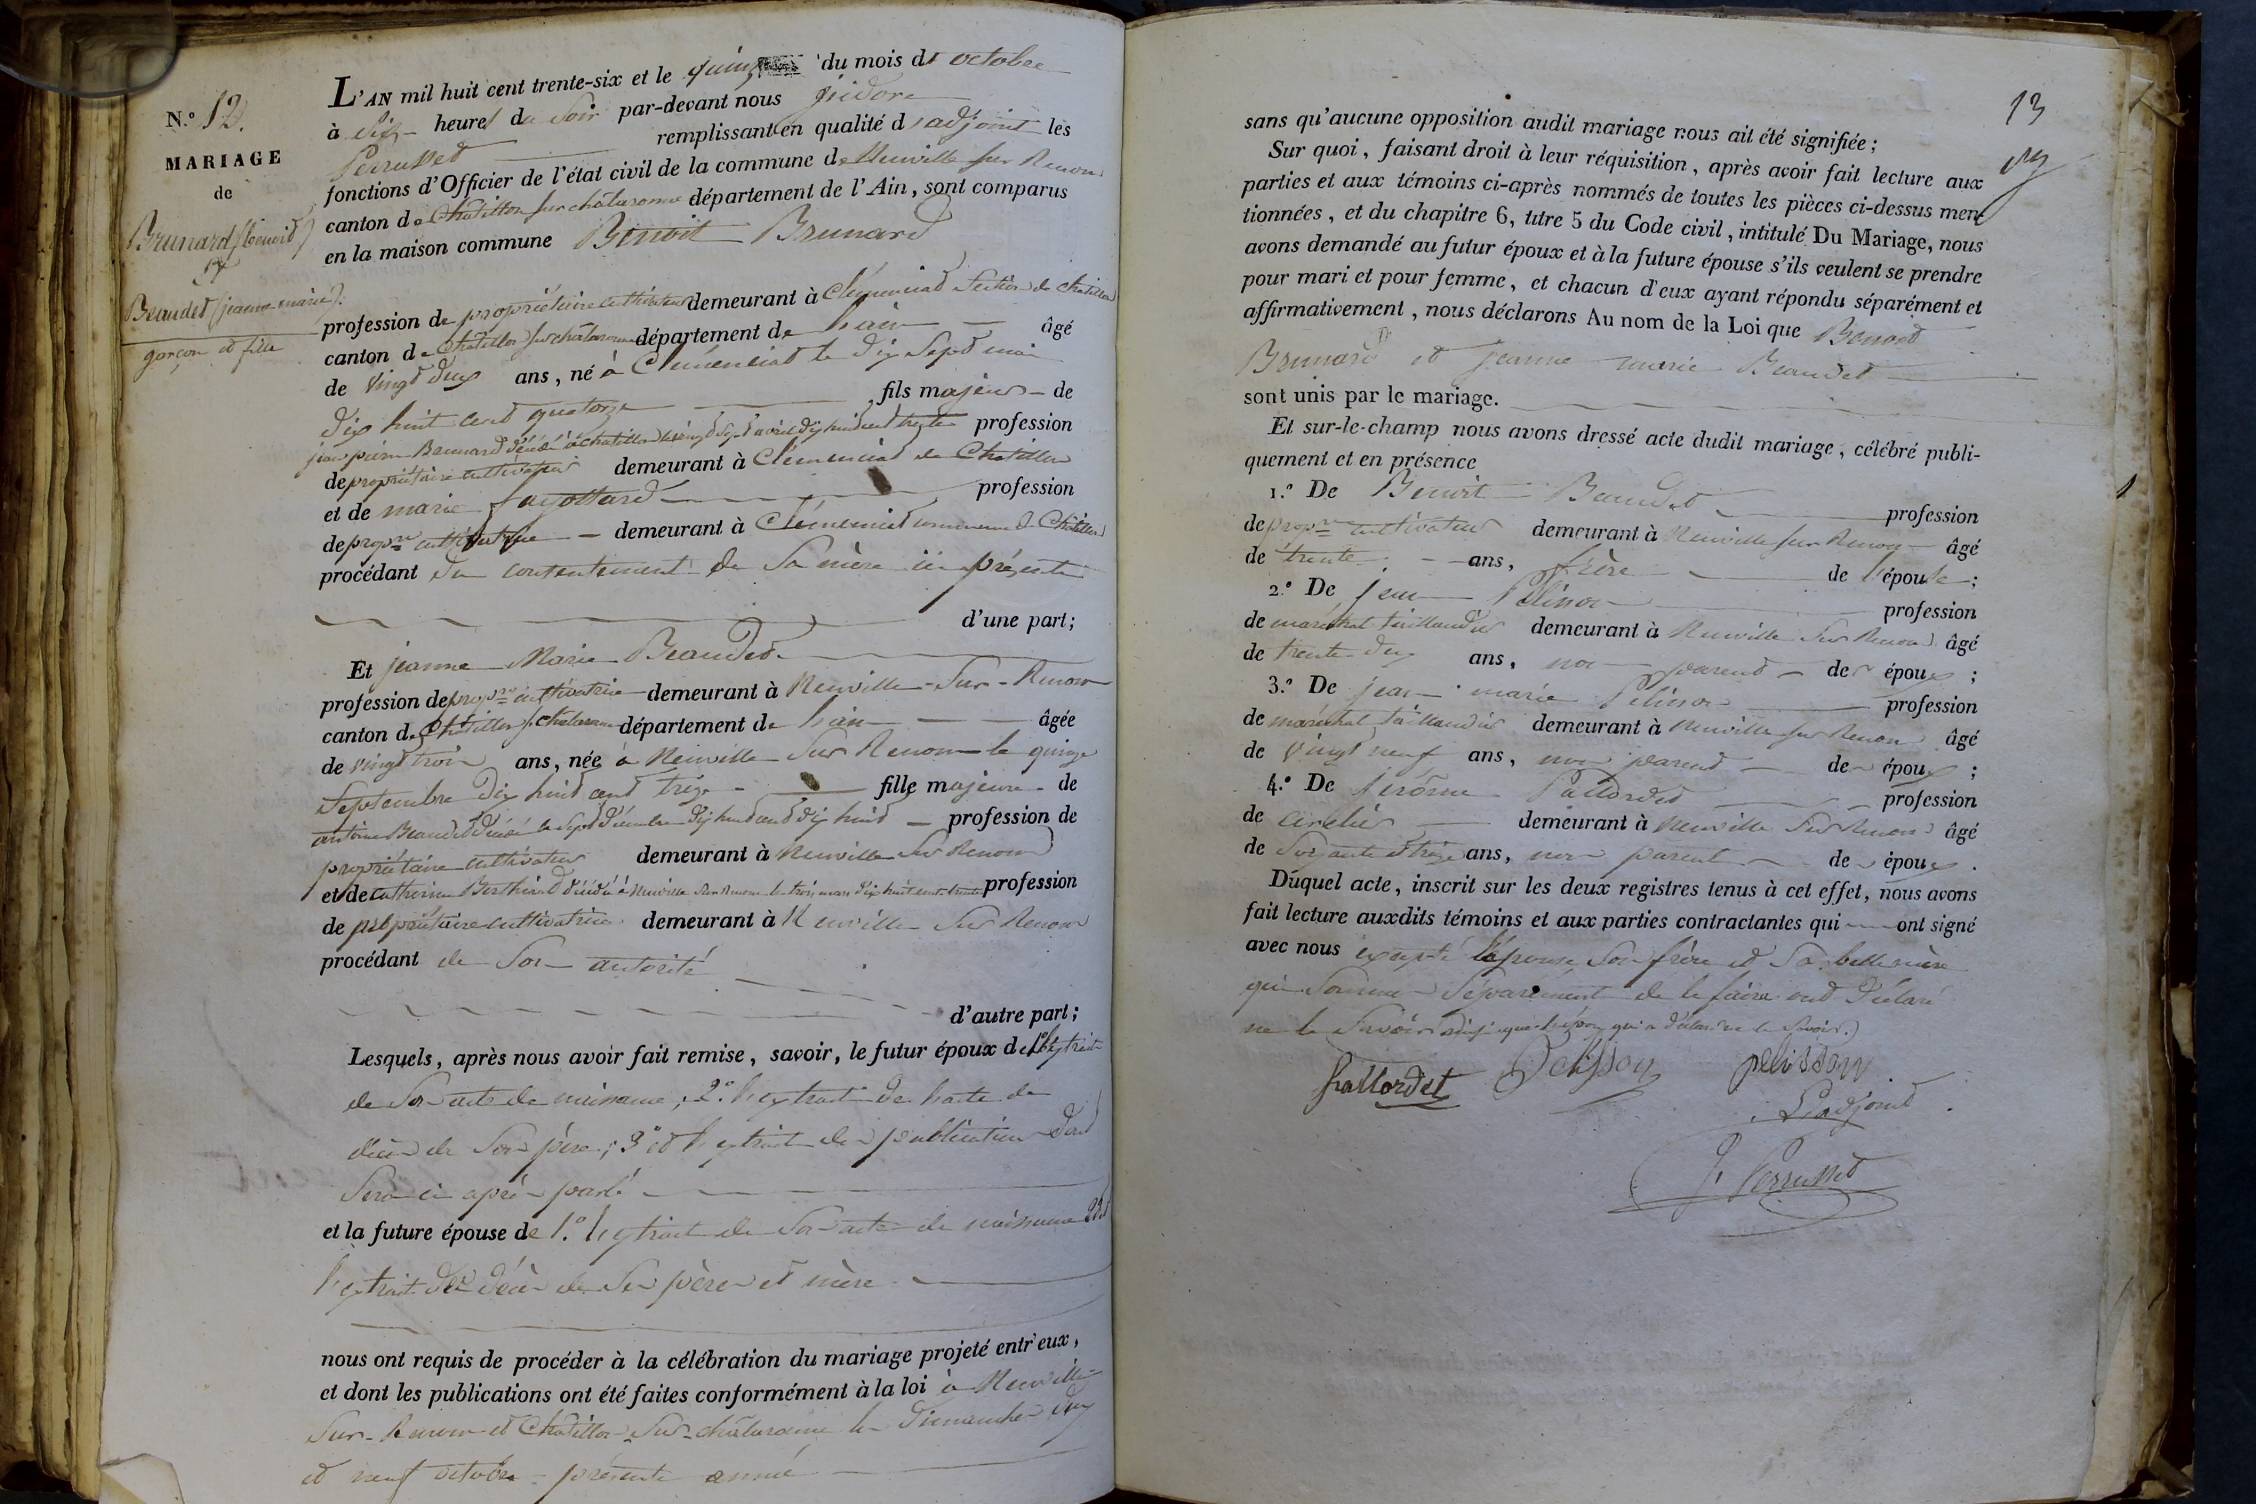 N.o 12.
MARIAGE
de
Brunard (benoit)
et
Beaudet (jeanne marie).
garçon et fille
L'AN mil huit cent trente-six et le quinze du mois d'octobre
à six heures du soir par-devant nous isidore
Perrusset remplissant en qualité d'adjoint les
fonctions d'Officier de l'état civil de la commune de Neuville sur Renom
canton de Chatillon sur chalaronne département de l'Ain, sont comparus
en la maison commune Benoit Brunard
profession de propriétaire cultivateur demeurant à Clémenciat section de chatillon
canton de chatillon sur chalaronne département de l'ain âgé
de vingt deux ans, né à Clémenciat le dix sept mai
dix huit cent quatorze fils majeur de
jean pierre Brunard décédé à chatillon le vingt sept avril dix huit cent trente profession
de propriétaire cultivateur demeurant à Clémenciat de Chatillon
et de marie fayollard profession
de propre cultivatrice demeurant à Clémenciat commune de Chatillon
procédant du consentement de sa mère ici présente
d'une part;
Et jeanne Marie Beaudet
profession de propre cultivatrice demeurant à Neuville Sur Renom
canton de Chatillon s. chalaronne département de l'ain âgée
de vingt trois ans, née à Neuville Sur Renom le quinze
Septembre dix huit cent treize fille majeure de
antoine Beaudet décédé le sept décembre dix huit cent dix huit profession de
propriétaire cultivateur demeurant à Neuville Sur Renom
et de catherine Berthiard décédée à Neuville Sur Renom le trois mars dix huit cent trente profession
de propriétaire cultivatrice demeurant à Neuville Sur Renom
procédant de Son autorité
d'autre part;
Lesquels, après nous avoir fait remise, savoir, le futur époux de 1o l'extrait
de Son acte de naissance; 2.o l'extrait de l'acte de
décès de Son père; 3o et l'extrait de publication dont
Sera ci après parlé
et la future épouse de 1.o l'extrait de Son acte de naissance 2o et
l'extrait des décès de Ses père et mère
nous ont requis de procéder à la célébration du mariage projeté entr'eux,
et dont les publications ont été faites conformément à la loi à Neuville
Sur Renom et Chatillon Sur chalaronne les dimanches deux
et neuf octobre présente année
13
sans qu'aucune opposition audit mariage nous ait été signifiée;
Sur quoi, faisant droit à leur réquisition, après avoir fait lecture aux
parties et aux témoins ci-après nommés de toutes les pièces ci-dessus men-
tionnées, et du chapitre 6, titre 5 du Code civil, intitulé Du Mariage, nous
avons demandé au futur époux et à la future épouse s'ils veulent se prendre
pour mari et pour femme, et chacun d'eux ayant répondu séparément et
affirmativement, nous déclarons Au nom de la Loi que Benoit
Brunard et jeanne marie Beaudet
sont unis par le mariage.
Et sur-le-champ nous avons dressé acte dudit mariage, célébré publi-
quement et en présence
1.o De Benoit Beaudet profession
de propre cultivateur demeurant à Neuville sur Renom âgé
de trente ans, frère de l'épouse;
2.o De jean Pelisson profession
de maréchal taillandier demeurant à Neuville Sur Renom âgé
de trente deux ans, non parent des époux;
3.o De jean marie Pelisson profession
de maréchal taillandier demeurant à Neuville sur Renom âgé
de vingt neuf ans, non parent des époux;
4.o De jérôme Pallordet profession
de demeurant à Neuville Sur Renom âgé
de Soixante et treize ans, non parent des époux.
Duquel acte, inscrit sur les deux registres tenus à cet effet, nous avons
fait lecture auxdits témoins et aux parties contractantes qui ont signé
avec nous excepté l'épouse, Son frère et Sa belle mère
qui Sommés Séparément de le faire ont déclaré
ne le Savoir ainsi que l'époux qui a déclaré ne le Savoir.
pallordet Pelisson pelisson
L'adjoint
J. Perrusset